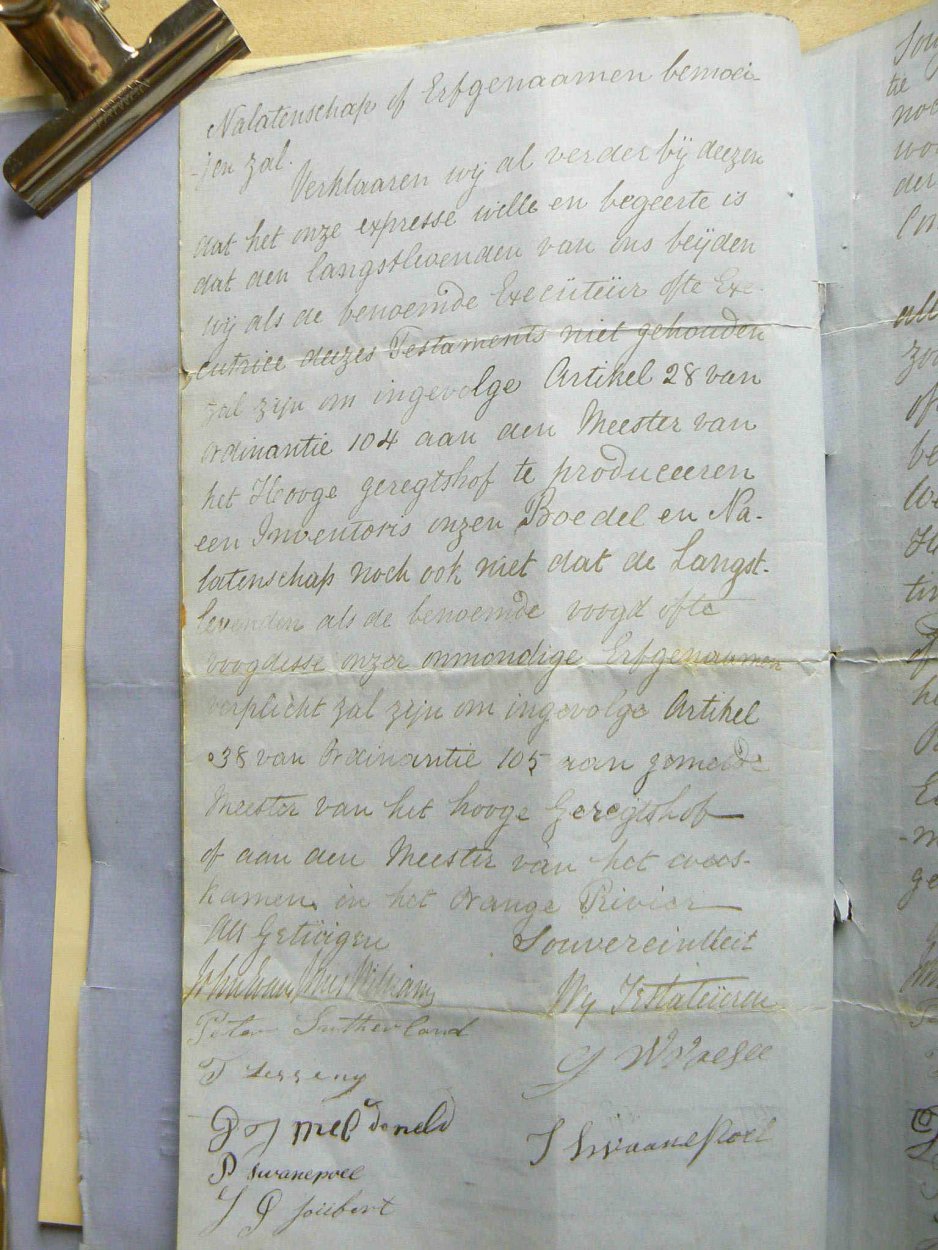 Nalatenschap of Erfgenaamen bemoei-
-jen zal.
Verklaaren wij al verder bij deezen
dat het onze expresse wille en begeerte is
dat den langstlevenden van ons beijden
wij als de benoemde Execüteür ofte Exe-
cutrice deezes Testaments niet gehouden
zal zijn om ingevolge Artikel 28 van
Ordinantie 104 aan den Meester van
het Hooge geregtshof te produceeren
een Inventoris onzen Boedel en Na-
latenschap noch ook niet dat de Langst-
levenden als de benoemde voogd ofte
voogdisse onzer onmondige Erfgenaamen
verplicht zal zijn om ingevolge Artikel
38 van Ordinantie 105 aan gemelde
Meester van het hooge Geregtshof
of aan den Meester van het wees-
kamer in het Orange Rivier
Als Getüigen Souvereinteit
William Wij Testateüren
Peter Sutherland
P J McDoneld
P Swanepoel J Swaanepoel
J P Joübert